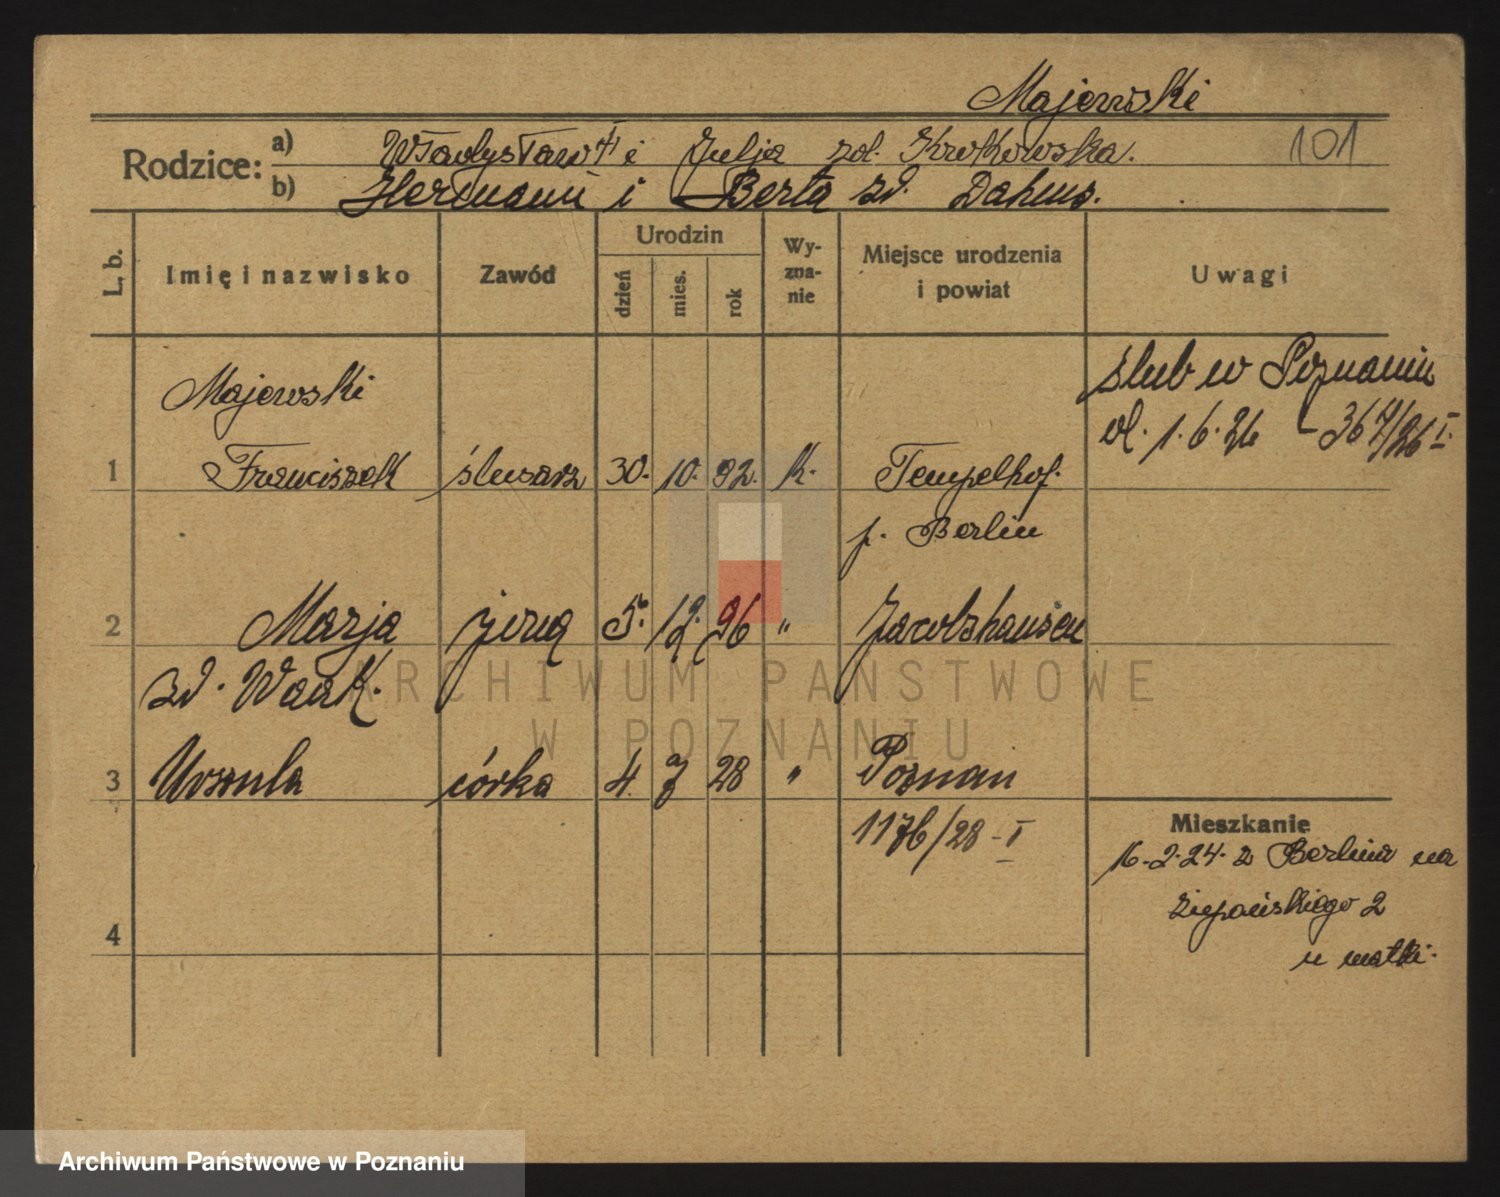 Majewski
101
Rodzice:
a) Władysław † i Julja zd. Krokowska.
b) Hermann i Berta zd. Dahms.
L. b.
Imię i nazwisko
Zawód
Urodzin
dzień
mies.
rok
Wy-
zna-
nie
Miejsce urodzenia
i powiat
Uwagi
ślub w Poznaniu
dl. 1.6.26 - 367/26 I.
Majewski
1 Franciszek ślusarz 30. 10. 92. k. Tempelhof.
p. Berlin
2 Marja żona 5. 12. 96 " Jacobshausen
zd. Wank.
3 Urszula córka 4. 7 28 " Poznań
1176/28 - I
4
Mieszkanie
16.2.24. z Berlina na
2
u matki.
ARCHIWUM PAŃSTWOWE
W POZNANIU
Archiwum Państwowe w Poznaniu